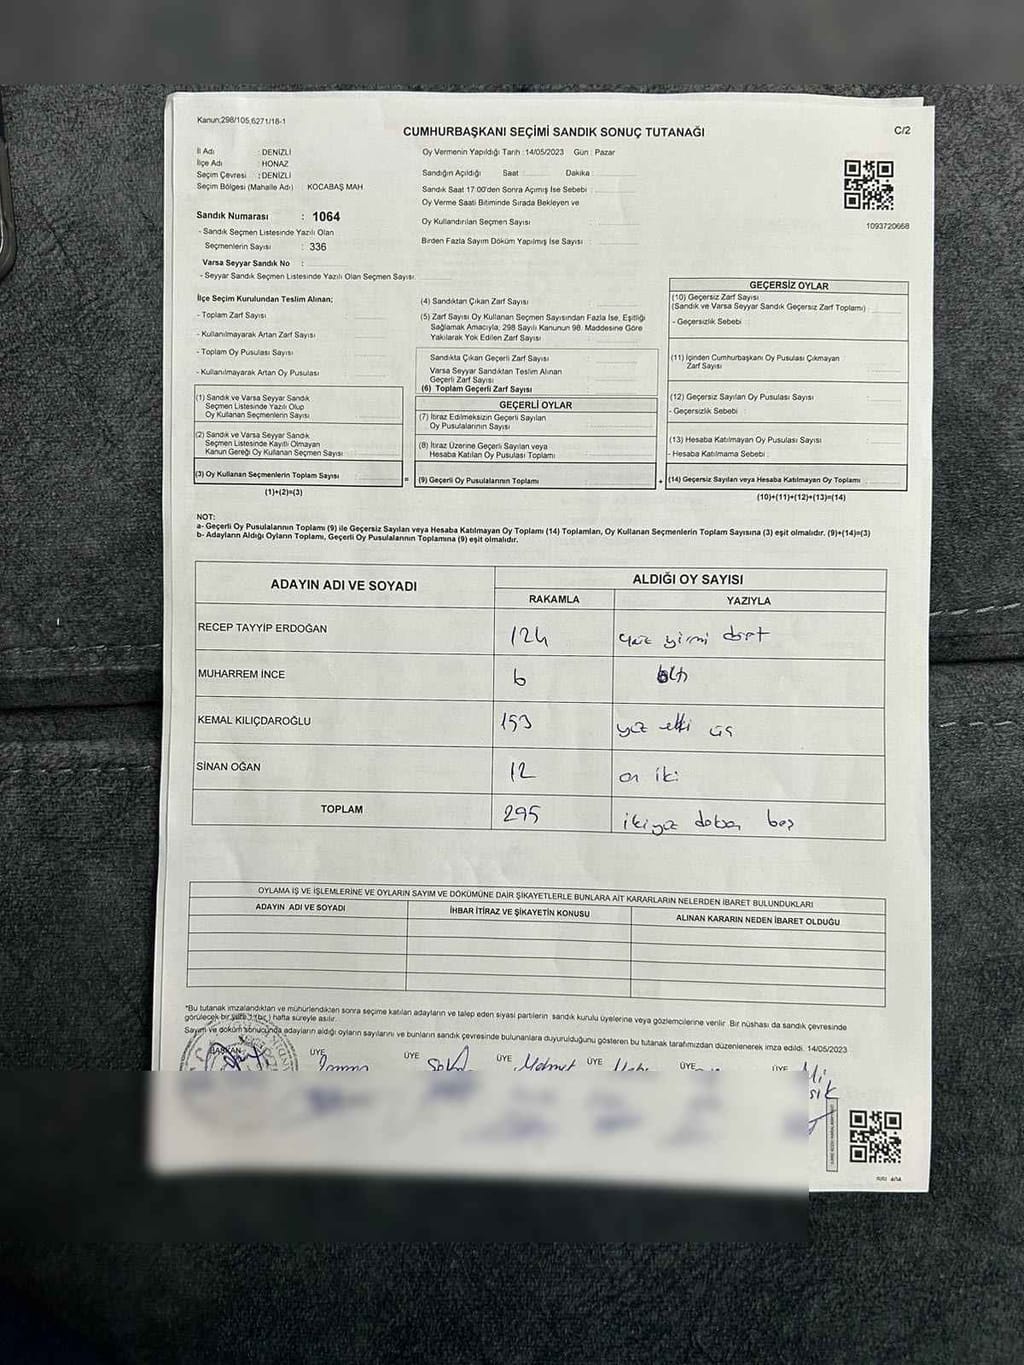 Kanun;298/105,6271/18-1
CUMHURBAŞKANI SEÇİMİ SANDIK SONUÇ TUTANAĞI
C/2
İl Adı : DENİZLİ
İlçe Adı : HONAZ
Seçim Çevresi : DENİZLİ
Seçim Bölgesi (Mahalle Adı) : KOCABAŞ MAH
Sandık Numarası : 1064
- Sandık Seçmen Listesinde Yazılı Olan
Seçmenlerin Sayısı : 336
Varsa Seyyar Sandık No :
- Seyyar Sandık Seçmen Listesinde Yazılı Olan Seçmen Sayısı:
Oy Vermenin Yapıldığı Tarih : 14/05/2023 Gün : Pazar
Sandığın Açıldığı Saat Dakika :
Sandık Saat 17:00'den Sonra Açmış İse Sebebi :
Oy Verme Saati Bitiminde Sırada Bekleyen ve
Oy Kullandırılan Seçmen Sayısı :
Birden Fazla Sayım Döküm Yapılmış İse Sayısı :
1093720668
İlçe Seçim Kurulundan Teslim Alınan;
- Toplam Zarf Sayısı
- Kullanılmayarak Artan Zarf Sayısı
- Toplam Oy Pusulası Sayısı
- Kullanılmayarak Artan Oy Pusulası
(1) Sandık ve Varsa Seyyar Sandık
Seçmen Listesinde Yazılı Olup
Oy Kullanan Seçmenlerin Sayısı
(2) Sandık ve Varsa Seyyar Sandık
Seçmen Listesinde Kayıtlı Olmayan
Kanun Gereği Oy Kullanan Seçmen Sayısı
(3) Oy Kullanan Seçmenlerin Toplam Sayısı
(1)+(2)=(3)
(4) Sandıktan Çıkan Zarf Sayısı
(5) Zarf Sayısı Oy Kullanan Seçmen Sayısından Fazla İse, Eşitliği
Sağlamak Amacıyla, 298 Sayılı Kanunun 98. Maddesine Göre
Yakılarak Yok Edilen Zarf Sayısı
Sandıkta Çıkan Geçerli Zarf Sayısı
Varsa Seyyar Sandıktan Teslim Alınan
Geçerli Zarf Sayısı
(6) Toplam Geçerli Zarf Sayısı
GEÇERLİ OYLAR
(7) İtiraz Edilmeksizin Geçerli Sayılan
Oy Pusulalarının Sayısı
(8) İtiraz Üzerine Geçerli Sayılan veya
Hesaba Katılan Oy Pusulası Toplamı
= (9) Geçerli Oy Pusulalarının Toplamı
GEÇERSİZ OYLAR
(10) Geçersiz Zarf Sayısı
(Sandık ve Varsa Seyyar Sandık Geçersiz Zarf Toplamı)
- Geçersizlik Sebebi :
(11) İçinden Cumhurbaşkanı Oy Pusulası Çıkmayan
Zarf Sayısı
(12) Geçersiz Sayılan Oy Pusulası Sayısı
- Geçersizlik Sebebi :
(13) Hesaba Katılmayan Oy Pusulası Sayısı
- Hesaba Katılmama Sebebi :
+ (14) Geçersiz Sayılan veya Hesaba Katılmayan Oy Toplamı
(10)+(11)+(12)+(13)=(14)
NOT:
a- Geçerli Oy Pusulalarının Toplamı (9) ile Geçersiz Sayılan veya Hesaba Katılmayan Oy Toplamı (14) Toplamları, Oy Kullanan Seçmenlerin Toplam Sayısına (3) eşit olmalıdır. (9)+(14)=(3)
b- Adayların Aldığı Oyların Toplamı, Geçerli Oy Pusulalarının Toplamına (9) eşit olmalıdır.
ADAYIN ADI VE SOYADI ALDIĞI OY SAYISI
RAKAMLA YAZIYLA
RECEP TAYYİP ERDOĞAN 124 yüz yirmi dört
MUHARREM İNCE 6 altı
KEMAL KILIÇDAROĞLU 153 yüz elli üç
SİNAN OĞAN 12 on iki
TOPLAM 295 ikiyüz doksan beş
OYLAMA İŞ VE İŞLEMLERİNE VE OYLARIN SAYIM VE DÖKÜMÜNE DAİR ŞİKAYETLERLE BUNLARA AİT KARARLARIN NELERDEN İBARET BULUNDUKLARI
ADAYIN ADI VE SOYADI İHBAR İTİRAZ VE ŞİKAYETİN KONUSU ALINAN KARARIN NEDEN İBARET OLDUĞU
*Bu tutanak imzalandıktan ve mühürlendikten sonra seçime katılan adayların ve talep eden siyasi partilerin sandık kurulu üyelerine veya gözlemcilerine verilir. Bir nüshası da sandık çevresinde
görülecek bir yere 1 (bir ) hafta süreyle asılır.
Sayım ve döküm sonucunda adayların aldığı oyların sayılarını ve bunların sandık çevresinde bulunanlara duyurulduğunu gösteren bu tutanak tarafımızdan düzenlenerek imza edildi. 14/05/2023
BAŞKAN ÜYE ÜYE ÜYE Mehmet ÜYE ÜYE ÜYE